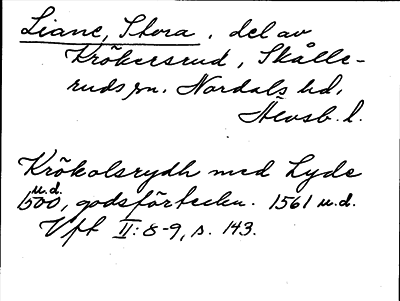 Liane, Stora, del av
Krökersrud, Skålle-
ruds sn. Nordals hd,
Älvsb. l.
Krökolsrydh med Lyde
1500 u.d., godsförteckn. 1561 u.d.
Vft II: 8-9, s. 143.